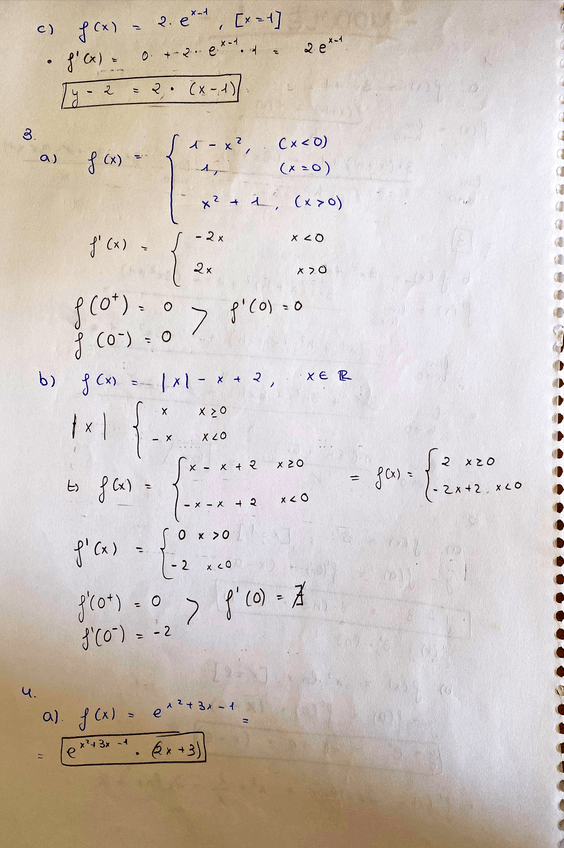 c) f(x) = 2 · e^{x-1}, [x=1]
• f'(x) = 0 + 2 · e^{x-1} · 1 = 2e^{x-1}
y - 2 = 2 · (x-1)
3.
a) f(x) = { 1 - x², (x<0)
1, (x=0)
x² + 1, (x>0)
f'(x) = { -2x x<0
2x x>0
f(0⁺) = 0 > f'(0) = 0
f(0⁻) = 0
b) f(x) = |x| - x + 2, x ∈ ℝ
|x| { x x≥0
-x x<0
f(x) = { x - x + 2 x≥0 = f(x) = { 2 x≥0
-x - x + 2 x<0 -2x+2, x<0
f'(x) = { 0 x>0
-2 x<0
f'(0⁺) = 0 > f'(0) = ∄
f'(0⁻) = -2
4.
a). f(x) = e^{x²+3x-1} =
= e^{x²+3x-1} · (2x+3)